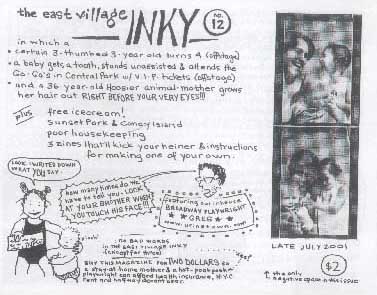 the east village
INKY
NO. 12
in which a
• certain 3-thumbed 3-year old turns 4 (offstage)
• a baby gets a tooth, stands unassisted & attends the
Go-Go's in Central Park w/ V.I.P. tickets (offstage)
• and a 36 year old Hoosier animal-mother grows
her hair out RIGHT BEFORE YOUR VERY EYES!!!
plus
free icecream!
Sunset Park & Coney Island
poor housekeeping
3 zines that'll kick your heiner & instructions
for making one of your own.
LOOK, I WRITED DOWN
WHAT YOU SAY.
how many times do I
have to tell you - LOOK
AT YOUR BROTHER WHEN
YOU TOUCH HIS FACE!!!
featuring our in house
BROADWAY PLAYWRIGHT
GREG
www.urinetown.com
no BAD WORDS
in THE EAST VILLAGE INKY
(except for three)
BUY THIS MAGAZINE FOR TWO DOLLARS so
a stay-at-home mother & a hot-pook-pook
playwright can afford health insurance, N.Y.C.
rent and halfway decent beer.
LATE JULY 2001
$2
↑ the only
negative space in this issue